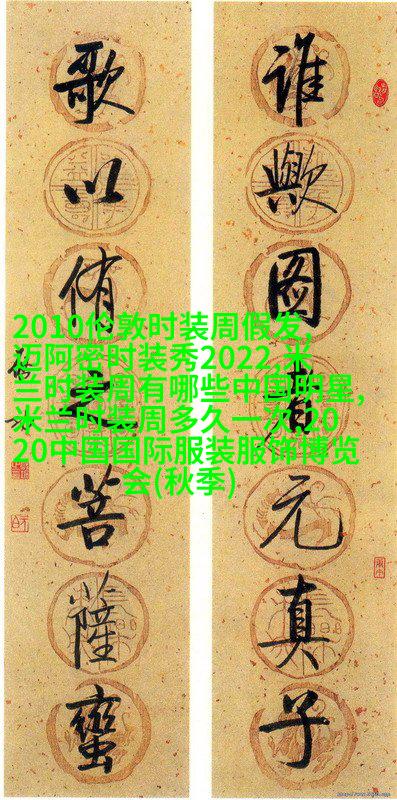 谁歟图者元真子
歌以侑菩薩蠻
2010伦敦时装周假发,
迈阿密时装秀2022,米
兰时装周有哪些中国明星,
米兰时装周多久一次,20
20中国国际服装服饰博览
会(秋季)